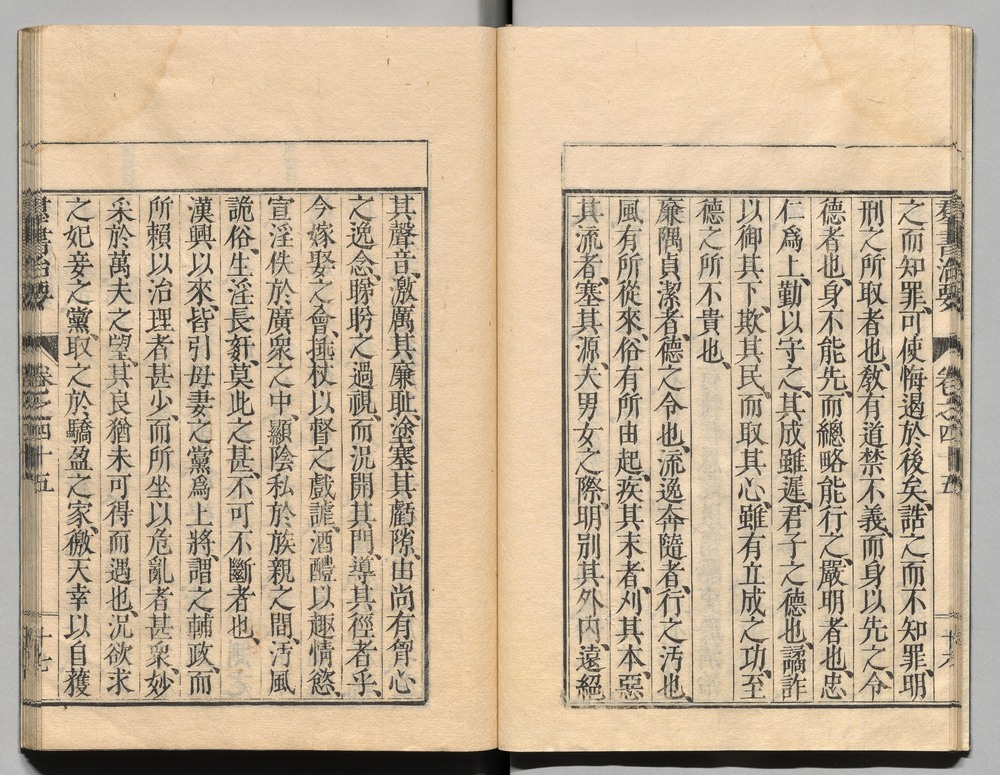 羣書治要 卷之四十五 十六
之而知罪、可使悔遏於後矣、誥之而不知罪、明
刑之所取者也、教有道、禁不義、而身以先之、令
德者也、身不能先、而總略能行之、嚴明者也、忠
仁爲上、勤以守之、其成雖遲、君子之德也、譎詐
以御其下、欺其民、而取其心、雖有立成之功、至
德之所不貴也、
廉隅貞潔者、德之令也、流逸奔隨者、行之汚也、
風有所從來、俗有所由起、疾其末者、刈其本、惡
其流者、塞其源、夫男女之際、明別其外內、遠絕
其聲音、激厲其廉耻、塗塞其虧隙、由尚有胷心
之逸念、睇盼之過視、而況開其門、導其徑者乎、
今嫁娶之會、捶杖以督之戲謔、酒醴以趣情慾、
宣淫佚於廣衆之中、顯陰私於族親之間、汚風
詭俗、生淫長姧、莫此之甚、不可不斷者也、
漢興以來、皆引母妻之黨爲上將、謂之輔政、而
所賴以治理者甚少、而所坐以危亂者甚衆、妙
采於萬夫之望、其良猶未可得而遇也、況欲求
之妃妾之黨、取之於驕盈之家、徼天幸以自獲
羣書治要 卷之四十五 十七